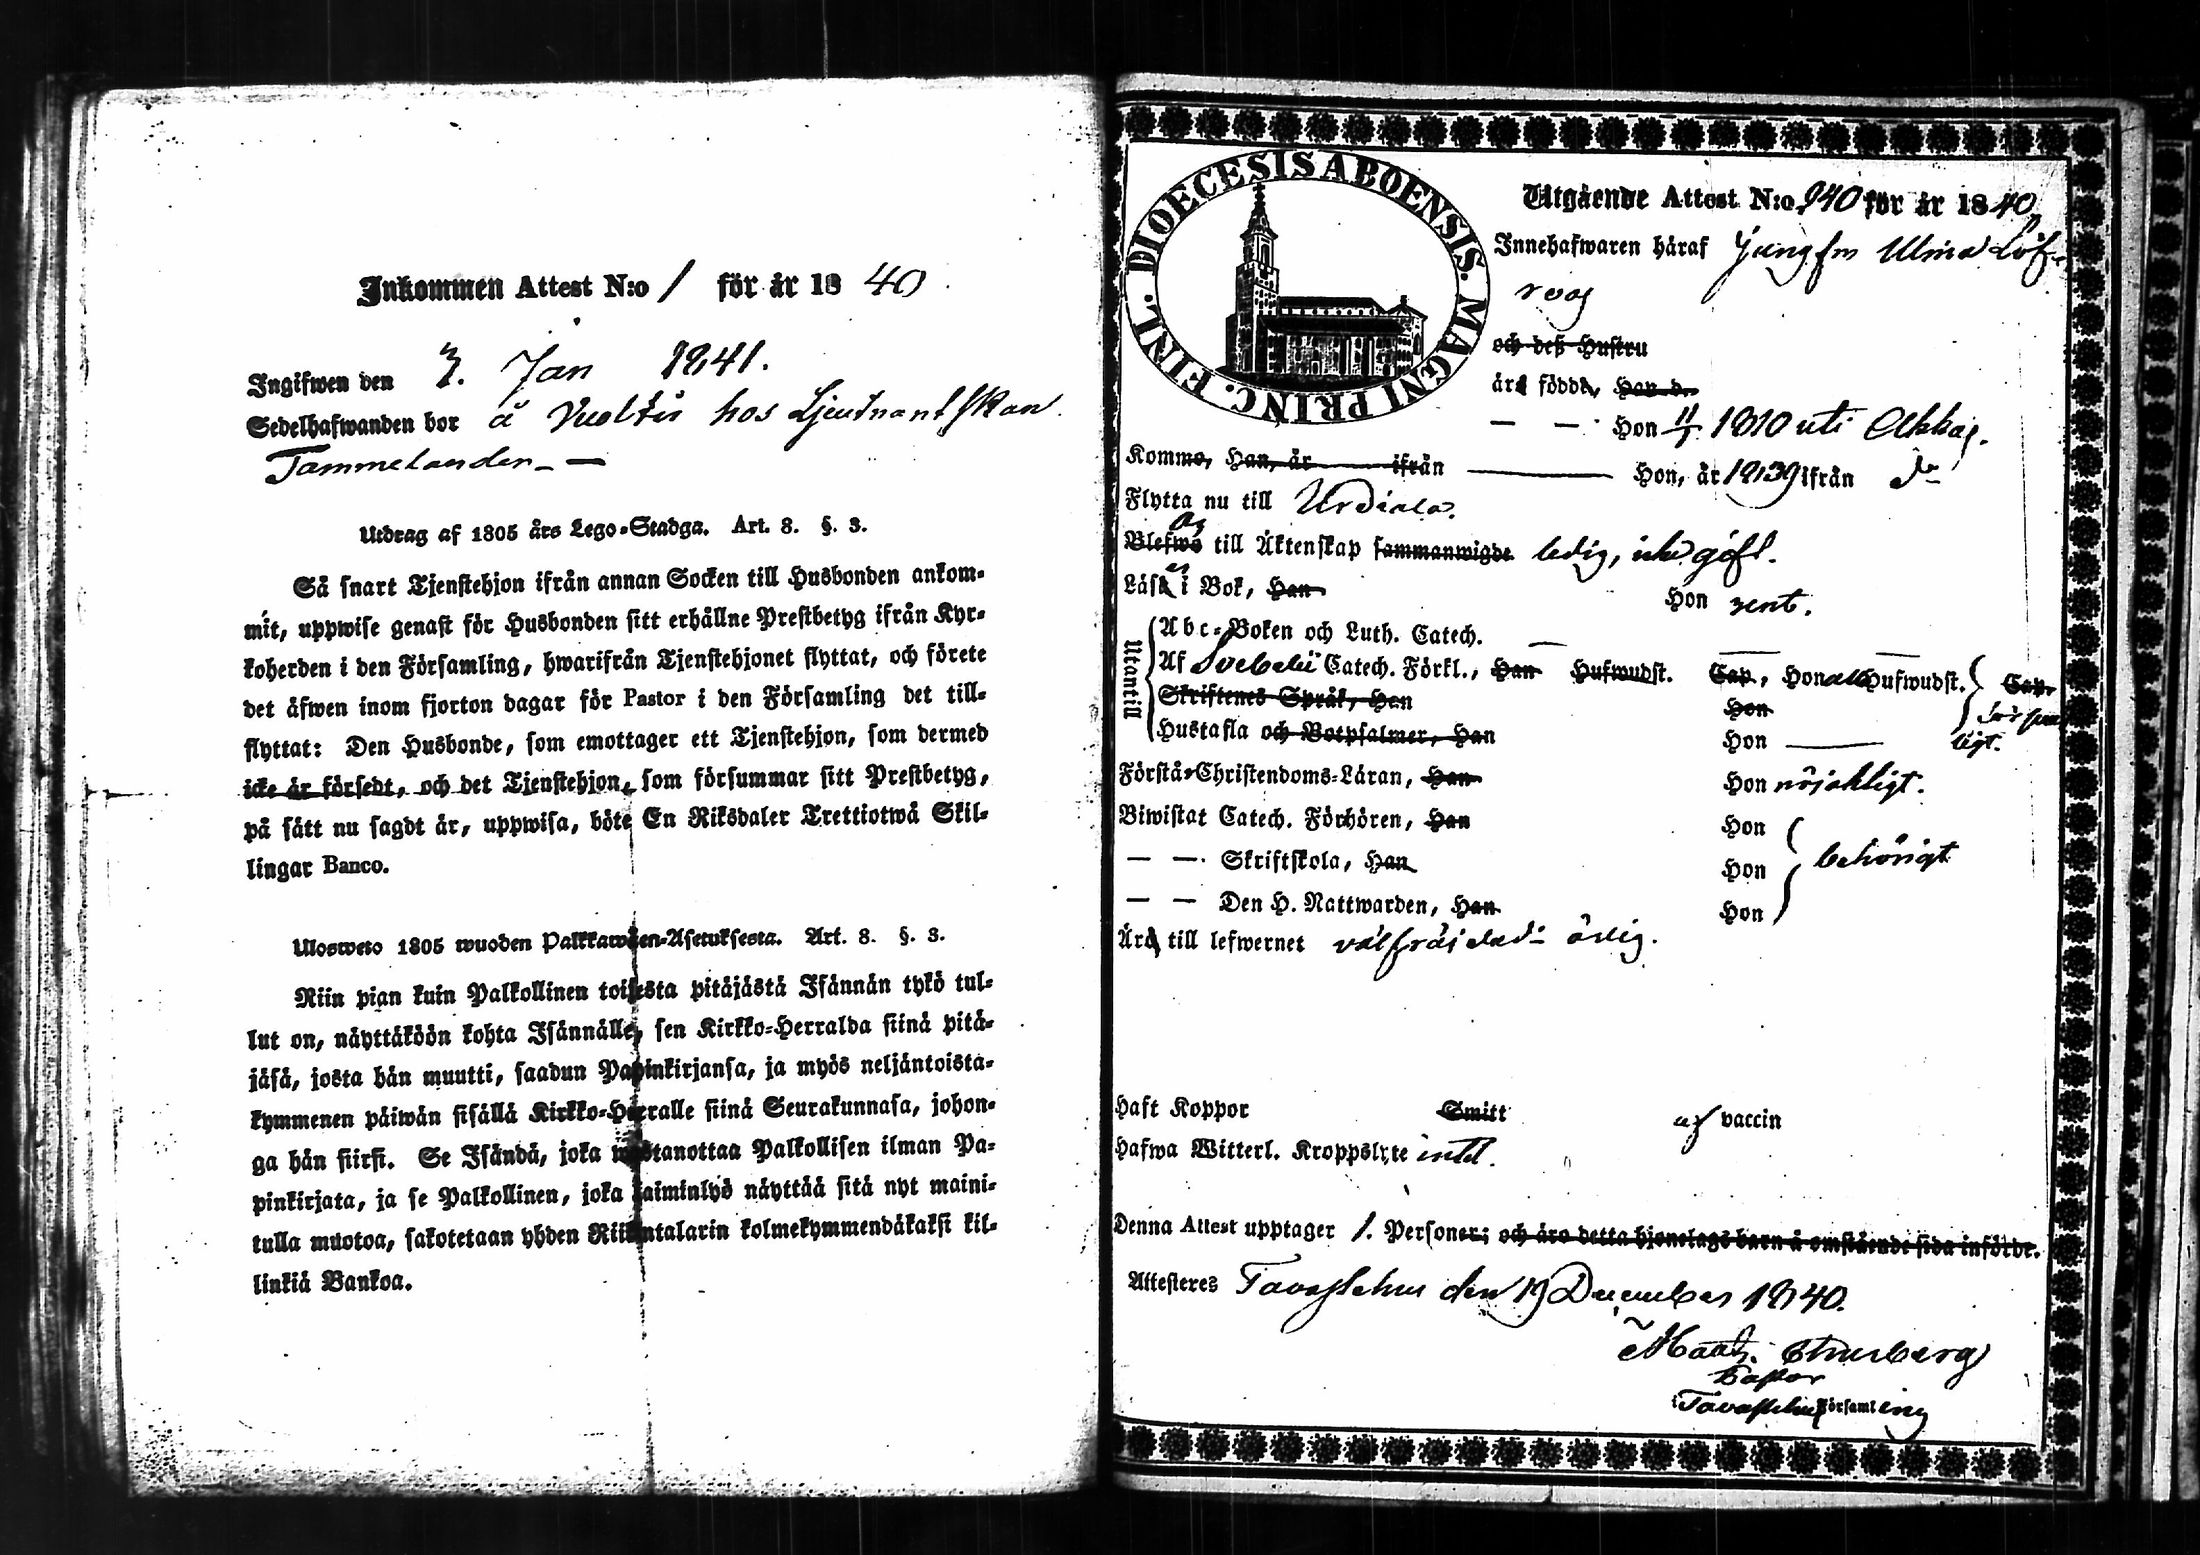 Inkommen Attest N:o 1 för år 1840
Ingifwen den 3. Jan 1841.
Sedelhafwanden bor å Vuoltis hos Ljeutnantskan
Tammelander
Utdrag af 1805 års Lego-Stadga. Art. 8. §. 3.
Så snart Tjenstehjon ifrån annan Socken till Husbonden ankom-
mit, uppwise genast för Husbonden sitt erhållne Prestbetyg ifrån Kyr-
koherden i den Församling, hwarifrån Tjenstehjonet flyttat, och förete
det äfwen inom fjorton dagar för Pastor i den Församling det till-
flyttat: Den Husbonde, som emottager ett Tjenstehjon, som dermed
icke är försedt, och det Tjenstehjon, som försummar sitt Prestbetyg,
på sätt nu sagdt är, uppwisa, böte En Riksdaler Trettiotwå Skil-
lingar Banco.
Ulosweto 1805 wuoden Palkkawäen-Asetuksesta. Art. 8. §. 3.
Niin pian kuin Palkollinen toisesta pitäjästä Isännän tykö tul-
lut on, näyttäköön kohta Isännälle, sen Kirkko-Herralda siinä pitä-
jäsä, josta hän muutti, saadun Papinkirjansa, ja myös neljäntoista-
kymmenen päiwän sisällä Kirkko-Herralle siinä Seurakunnasa, johon-
ga hän siirsi. Se Isändä, joka wastanottaa Palkollisen ilman Pa-
pinkirjata, ja se Palkollinen, joka laiminlyö näyttää sitä nyt maini-
tulla muotoa, sakotetaan yhden Riikintalarin kolmekymmendäkaksi kil-
linkiä Bankoa.
DIOECESIS ABOENSIS. MAGNI PRINC. FINL.
Utgående Attest N:o 940 för år 1840
Innehafwaren häraf Jungfru Ulrica Löf-
och deß Hustru
ära födde, Han d.
— — Hon 11/1 1810 uti Akkas.
Komme, Han, år ifrån Hon, år 1839 ifrån do
Flytta nu till Urdiala.
Blefwo till Äktenskap sammanwigde ledig, icke gift.
Läsa i Bok, Han Hon rent.
Utantill
Abc-Boken och Luth. Catech.
Af Svebelii Catech. Förkl., Han Hufwudst. Cap, Hon alla Hufwudst. Cap.
Skriftenes Språk, Han Hon försvar-
Hustafla och Botpsalmer, Han Hon ligt.
Förstå Christendoms-Läran, Han Hon nöjaktigt.
Biwistat Catech. Förhören, Han Hon
— — Skriftskola, Han Hon behörigt
— — Den H. Nattwarden, Han Hon
Ära till lefwernet välfräjdad o ärlig.
Haft Koppor Smitt af vaccin
Hafwa Witterl. Kroppslyte intet.
Denna Attest upptager 1. Personer; och äro detta hjonelags barn å omstående sida införde.
Attesteres Tavastehus den 19 December 1840.
Pastor
i Tavastehus Församling